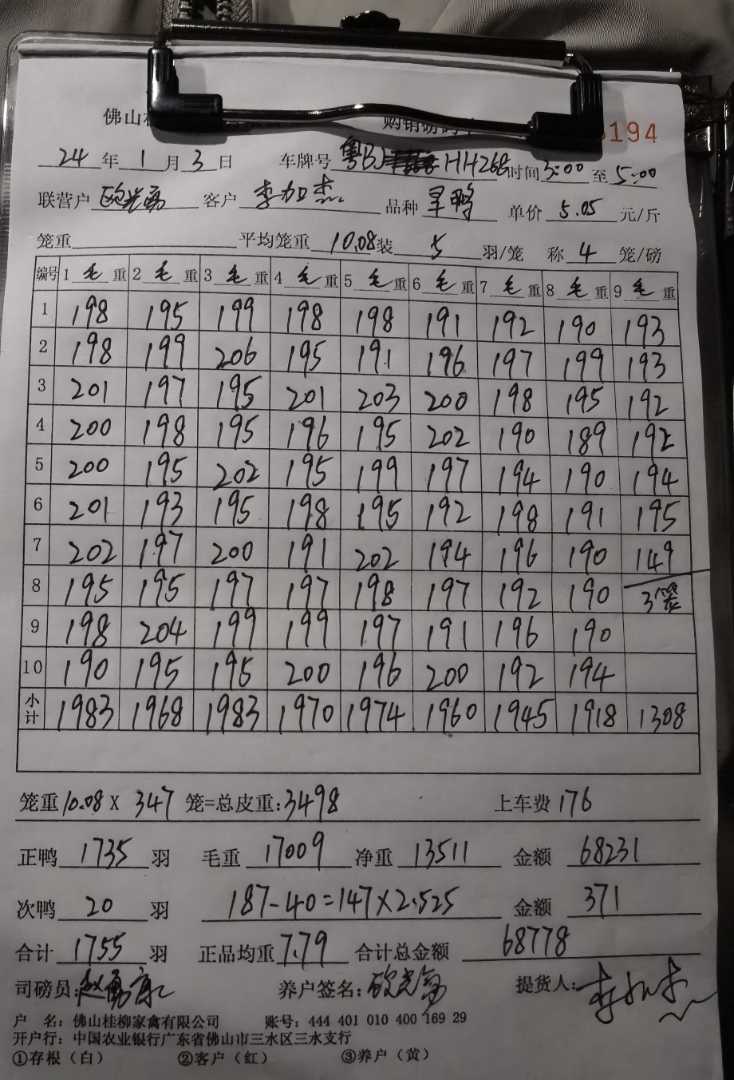 佛山桂 购销磅码单 194
24年1月3日 车牌号粤BJ HH268 时间3:00至5:00
联营户 客户李加杰 品种旱鸭 单价5.05元/斤
笼重 平均笼重10.08装5羽/笼 称4笼/磅
编号 1毛重 2毛重 3毛重 4毛重 5毛重 6毛重 7毛重 8毛重 9毛重
1 198 195 199 198 198 191 192 190 193
2 198 199 206 195 191 196 197 199 193
3 201 197 195 201 203 200 198 195 192
4 200 198 195 196 195 202 190 189 192
5 200 195 202 195 199 197 194 190 194
6 201 193 195 198 195 192 198 191 195
7 202 197 200 191 202 194 196 190 149
8 195 195 197 197 198 197 192 190 3笼
9 198 204 199 199 197 191 196 190
10 190 195 195 200 196 200 192 194
小计 1983 1968 1983 1970 1974 1960 1945 1918 1308
笼重10.08×347笼=总皮重:3498 上车费176
正鸭1735羽 毛重17009 净重13511 金额68231
次鸭20羽 187-40=147×2.525 金额371
合计1755羽 正品均重7.79 合计总金额68778
司磅员: 养户签名: 提货人:李加杰
户 名:佛山桂柳家禽有限公司 账号:444 401 010 400 169 29
开户行:中国农业银行广东省佛山市三水区三水支行
①存根(白) ②客户(红) ③养户(黄)